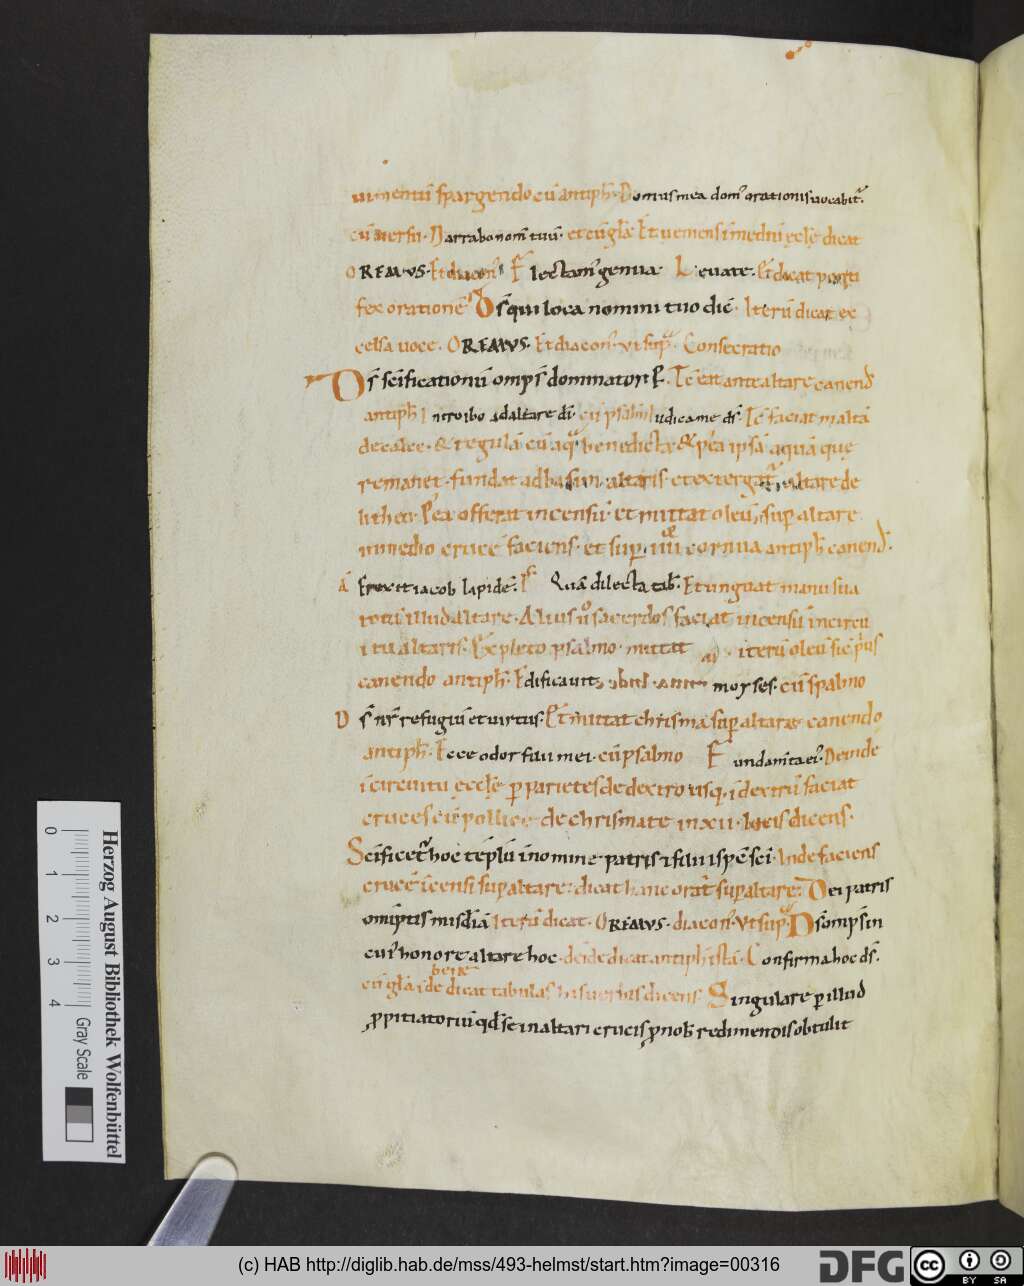 uimentū spargendo cū antiph̄. Domus mea dom' orationis uocabit'.
cū uersu. Narrabo nom̄ tuū. et cū gl̄a. Et ueniens ī mediū ęcl̄ę dicat
OREMVS. Et diacon' Flectam' genua. Leuate. Et dicat ponti
fex orationē Ds̄ qui loca nomini tuo dic̄. Iterū dicat ex
celsa uoce. OREMVS. Et diacon' ut sup. Consecratio
Ds̄ sc̄ificationū omps̄ dominator R. Tc̄ eat ante altare canend̄
antiph̄ Introibo ad altare dī. cū psalm̄ Iudica me ds̄. Tc̄ faciat maltā
de calce. & tegulā cū aq̄ benedicta & p'ea ipsā aquā quę
remanet. fundat ad basim altaris. et extergat' altare de
litheo. P'ea offerat incensū. et mittat oleū sup altare
in medio crucē faciens. et sup iiii cornua antiph̄ canend̄.
Ā Erexit iacob lapidē. Ps Quā dilecta tab̄. Et unguat manu sua
totū illud altare. Alius ū sacerdos faciat incensū in circu
itu altaris. Expleto psalmo mittat iterū oleū sic p'us
canendo antiph̄. Edificauit moyses. cū psalmo
Ds̄ nr̄ refugiū et uirtus. Et mittat chrisma sup altare canendo
antiph̄. Ecce odor filii mei. cū psalmo Fundam̄ta ei'. Deinde
ī circuitu ęccl̄ę p parietes de dextro usq, ī dextrū faciat
cruces cū pollice de chrismate in xii. locis dicens.
Sc̄ificet' hoc tēplū in nomine patris & filii & sp̄c sc̄i. Inde faciens
crucē īcensi sup altare: dicat hanc orat̄ sup altare: Dei patris
omīptis mis̄dīā Iterū dicat. OREMVS. diacon'. Vt sup. Ds̄ omps̄ in
cui' honore altare hoc. deīde dicat antiph̄ istā. Confirma hoc ds̄.
bene
cū gl̄a īde dicat tabulas his uerbis dicens Singulare p illud
ppitiatoriū qd̄ se in altari crucis p nob̄ redimendis obtulit
0
1
2
3
4
Herzog August Bibliothek Wolfenbüttel
Gray Scale
(c) HAB http://diglib.hab.de/mss/493-helmst/start.htm?image=00316
DFG
cc
BY SA